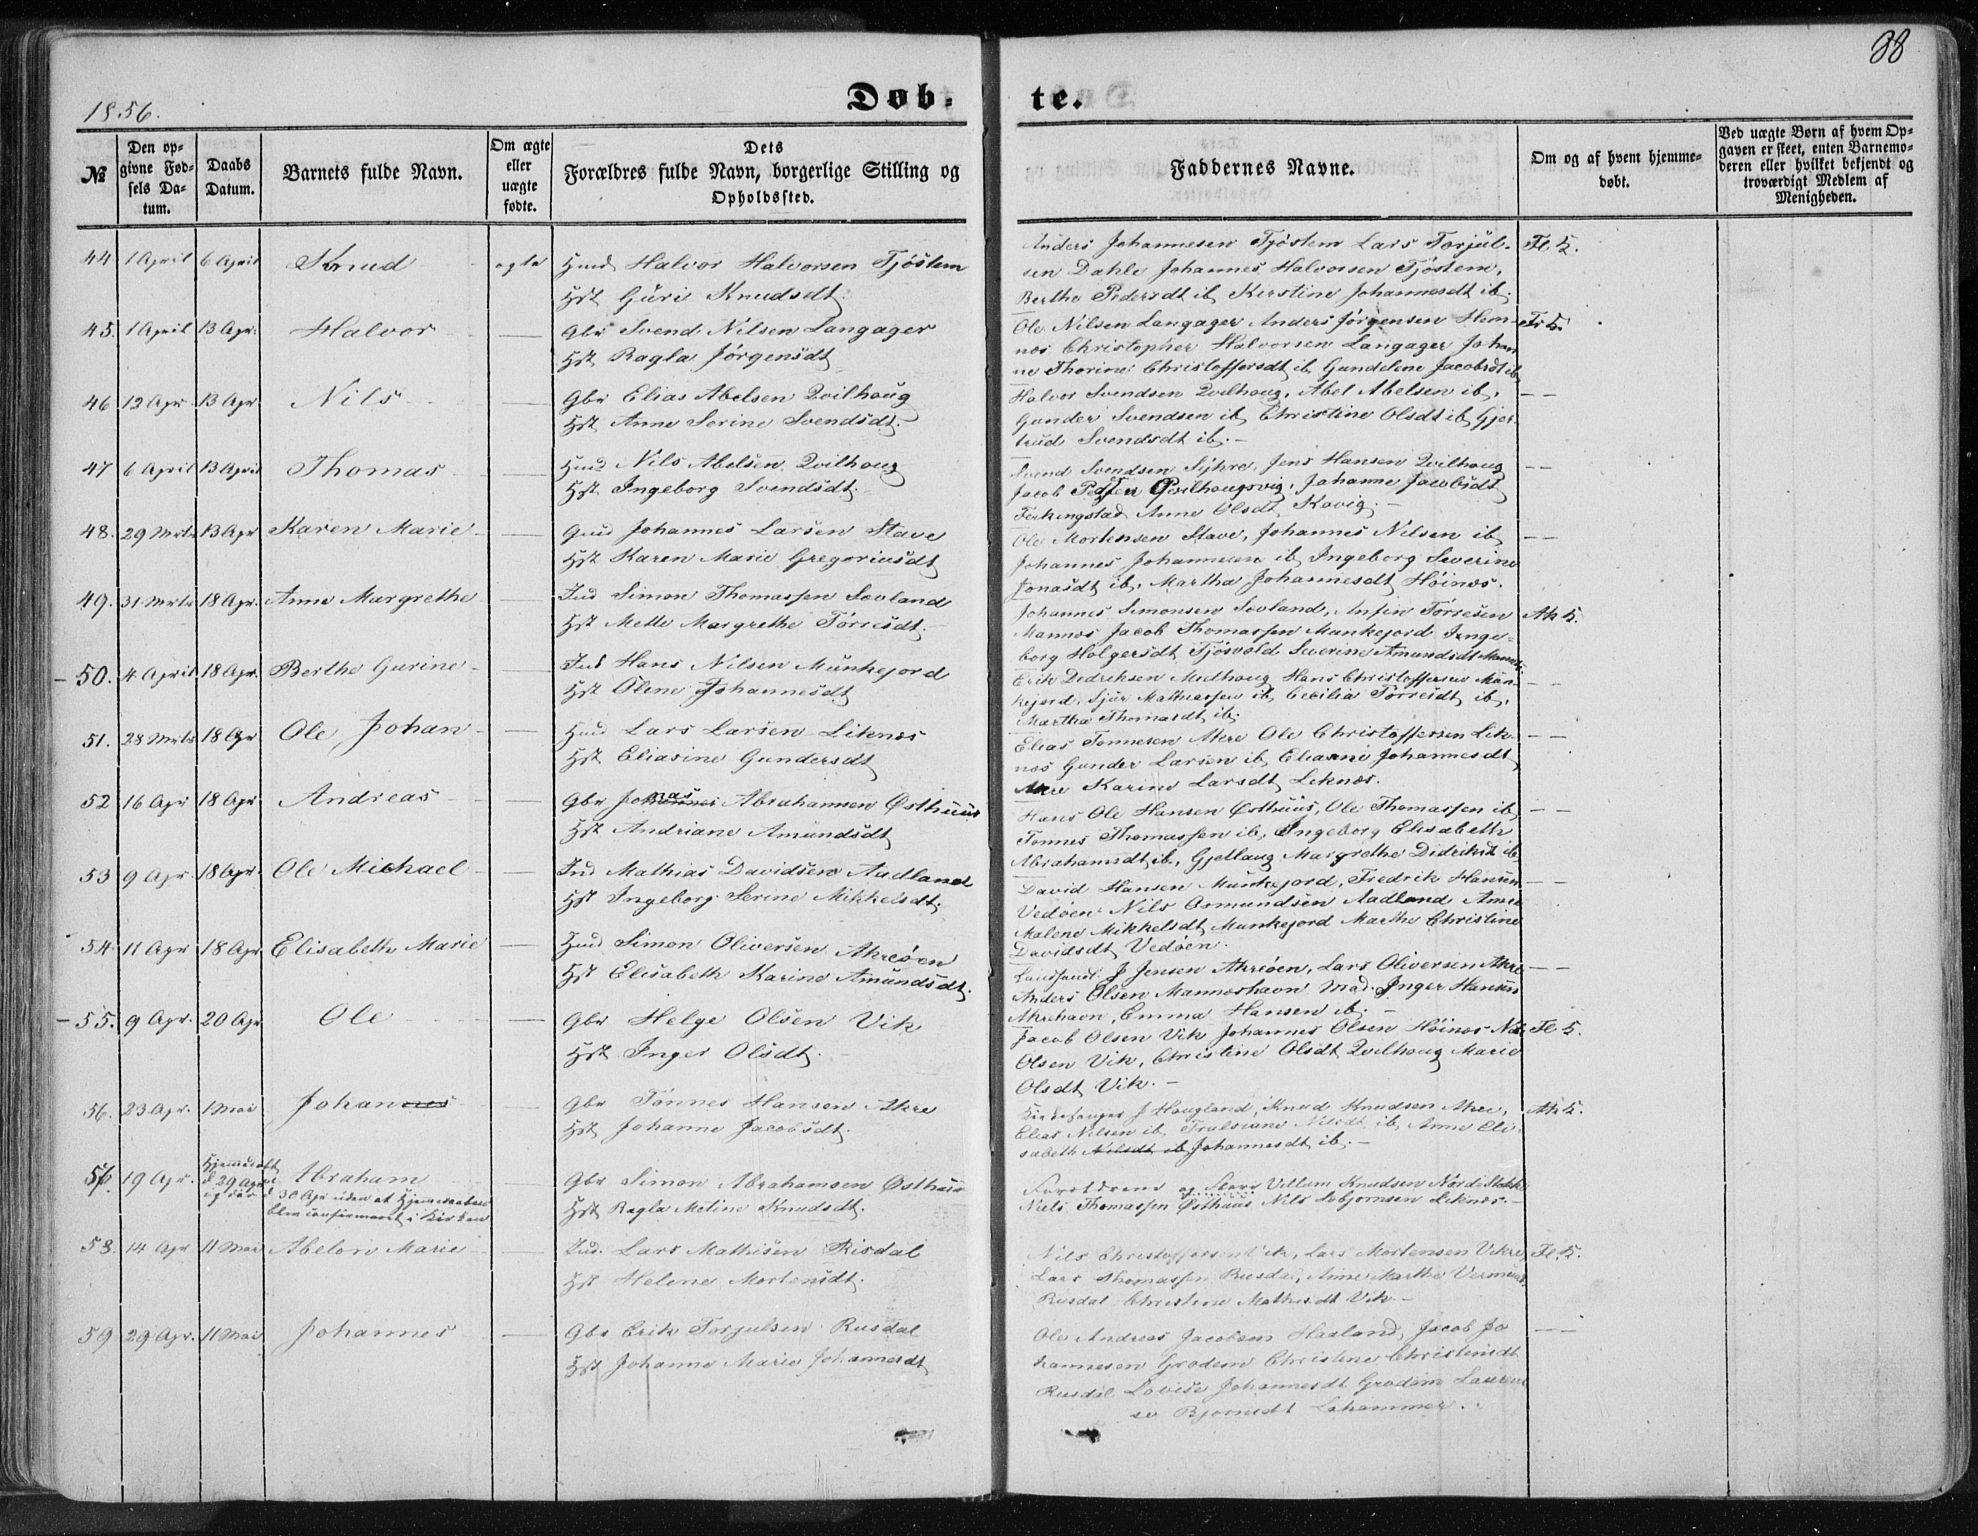 1856.
Døb-
te.
88
№
Den op-
givne Fød-
sels Da-
tum.
Daabs
Datum.
Barnets fulde Navn.
Om ægte
eller
uægte
fødte.
Dets
Forældres fulde Navn, borgerlige Stilling og
Opholdssted.
Faddernes Navne.
Om og af hvem hjemme-
døbt.
Ved uægte Børn af hvem Op-
gaven er skeet, enten Barnemo-
deren eller hvilket bekjendt og
troværdigt Medlem af
Menigheden.
44 1 April 6 April Knud ægte Hmd Halvor Halvorsen Tjöstem
Hst Guri Knudsdt.
Anders Johannesen Tjöstem Lars Torjul-
sen Dahle Johannes Halvorsen Tjöstem,
Berthe Pedersdt ib, Kerstine Johannesdt ib.
Fl K.
45. 1 April 13 Apr. Halvor Gbr Svend Nilsen Langager
Hst Ragla Jörgensdt
Ole Nilsen Langager Anders Jörgensen Hem-
nes Christopher Halvorsen Langager Johan
ne Thorine Christoffersdt ib, Gundelene Jacobsdt ib
46 12 Apr 13 Apr. Nils Gbr Elias Abelsen Qvilhoug
Hst Anne Serine Svendsdt.
Halvor Svendsen Qvilhoug, Abel Abelsen ib,
Gunder Svendsen ib, Christine Olsdt ib, Gjer-
trud Svendsdt ib.
47 6 April 13 April Thomas Hmd Nils Abelsen Qvilhoug
Hst. Ingeborg Svendsdt.
Svend Svendsen Syhre, Jens Hansen Qvilhoug
Jacob Qvilhougsvig, Johanne Jacobsdt
Ferkingstad Anne Olsdt Kovig.
48. 29 Mrts 13 Apr Karen Marie Johannes Larsen Stave
Hst Karen Marie Gregoriusdt
Ole Mortensen Stave, Johannes Nilsen ib
Johannes Johannesen ib, Ingeborg Severine
Jonasdt ib, Martha Johannesdt Höines.
49. 31 Mrts 18 Apr. Anne Margrethe Ind Simon Thomassen Sœvland
Hst Mette Margrethe Törresdt.
Johannes Simonsen Sœvland, Anfin Törresen
Mannes Jacob Thomassen Munkejord Inge-
borg Holgersdt Tjösvold Severine Amundsdt
Ak K.
50. 4 April 18 Apr. Berthe Gurine Ind Hans Nilsen Munkejord
Hst Olene Johannesdt
Erik Didriksen Midhoug Hans Christoffersen Mun-
kejord, Sjur Mathiassen ib, Cecilia Törresdt ib,
Martha Thomasdt ib.
51. 28 Mrts 18 Apr Ole Johan Hmd Lars Larsen Liknes
Hst Eliasine Gundersdt
Elias Tönnesen Akre Ole Christoffersen Lik-
nes Gunder Larsen ib, Eliasine Johannesdt
Akre Karine Larsdt Liknes.
52 16 Apr 18 Apr. Andreas Gbr Jonas Abrahamsen Østhuus
Hst Andriane Amundsdt
Hans Ole Hansen Østhuus, Ole Thomassen ib
Tönnes Thomassen ib, Ingeborg Elisabeth
Abrahamsdt ib, Gjellaug Margrethe Didriksdt ib
53 9 Apr 18 Apr. Ole Michael Ind Mathias Davidsen Aadland
Hst Ingeborg Serine Mikkelsdt.
David Hansen Munkejord, Fredrik Hansen
Vedöen Nils Osmundsen Aadland Anne
Malene Mikkelsdt Munkejord Marthe Christine
Davidsdt Vedöen.
54. 11 Apr 18 Apr Elisabeth Marie Simon Oliversen Akreöen
Hst Elisabeth Karine Amundsdt.
J Jensen Akreöen, Lars Oliversen Akre
Anders Olsen Manneshavn Mad. Inger Hansen
Akrehavn, Emma Hansen ib.
55. 9 Apr. 20 Apr Ole Gbr Helge Olsen Vik
Hst Inger Olsdt.
Jacob Olsen Vik Johannes Olsen Höines
Olsen Vik, Christine Olsdt Qvilhoug Marie
Olsdt Vik.
Fl K.
56. 23 Apr. 1 Mai Johannes Gbr Tönnes Hansen Akre
Hst Johanne Jacobsdt.
Kirkesanger J Hougland, Knud Knudsen Akre,
Elias Nilsen ib, Nilsdt ib, Anne Eli-
sabeth Nilsdt ib Johannesdt ib.
Ak K.
57. 19 Apr. Hjemmedøbt
d 29 Apr
Abraham
d 30 Apr uden at Hjemmedaaben
blev confirmeret i Kirken
Gbr Simon Abrahamsen Østhuus
Hst Ragla Metine Knudsdt.
Forældrene og Villum Knudsen
Niels Thomassen Østhuus Nils Liknes.
58. 14 Apr 11 Mai Abelone Marie Ind. Lars Mathisen Risdal
Hst Helene Mortensdt.
Nils Christoffersen Vik, Lars Mortensen Vikre
Lars Thomassen Rusdal, Anne Marthe
Rusdal Christine Mathisdt Vik
Fl. K.
59 29 Apr. 11 Mai Johannes Gbr Erik Torjulsen Rusdal
Hst Johanne Marie Johannesdt
Ole Andreas Jacobsen Haaland, Jacob Jo
hannesen Grødem Christine Christensdt
Rusdal Lovise Johannesdt Grødem
Bjornsdt Lahammer.